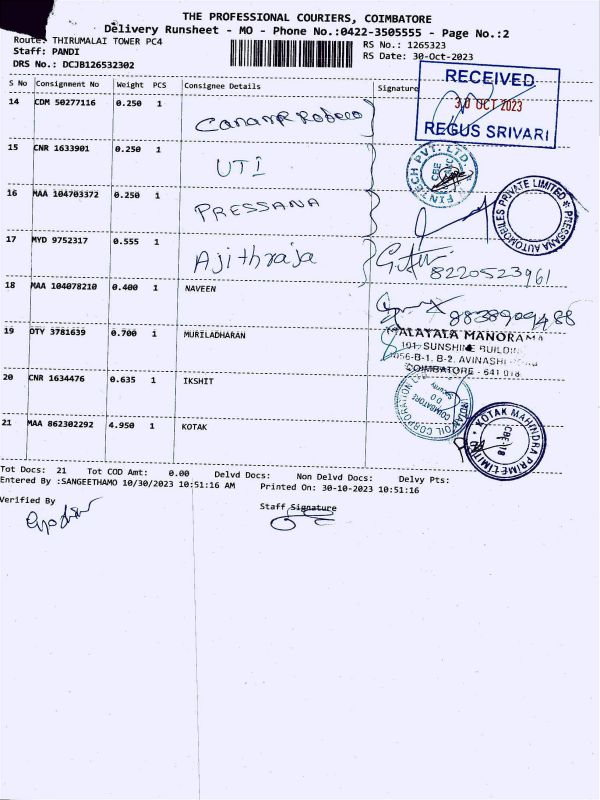 THE PROFESSIONAL COURIERS, COIMBATORE
Delivery Runsheet - MO - Phone No.:0422-3505555 - Page No.:2
Route: THIRUMALAI TOWER PC4
RS No.: 1265323
Staff: PANDI
RS Date: 30-Oct-2023
DRS No.: DCJB126532302
S No Consignment No Weight PCS Consignee Details Signature
RECEIVED
30 OCT 2023
REGUS SRIVARI
14 CDM 50277116 0.250 1
15 CNR 1633901 0.250 1 UTI
FINTECH PVT. LTD.
CBE
16 MAA 104703372 0.250 1 PRESSANA
PRESSANA AUTOMOBILES PRIVATE LIMITED
17 MYD 9752317 0.555 1 Ajithraja
8220523961
18 MAA 104078210 0.400 1 NAVEEN
19 OTY 3781639 0.700 1 MURILADHARAN
MALAYALA MANORAMA
101, SUNSHINE
B-1, B-2, AVINASHI
COIMBATORE - 641 018
20 CNR 1634476 0.635 1 IKSHIT
OIL CORPORATION
COIMBATORE
DO
Security
21 MAA 862302292 4.950 1 KOTAK
KOTAK MAHINDRA PRIME LIMITED
CBE-18
Tot Docs: 21 Tot COD Amt: 0.00 Delvd Docs: Non Delvd Docs: Delvy Pts:
Entered By :SANGEETHAMO 10/30/2023 10:51:16 AM Printed On: 30-10-2023 10:51:16
Verified By
Staff Signature